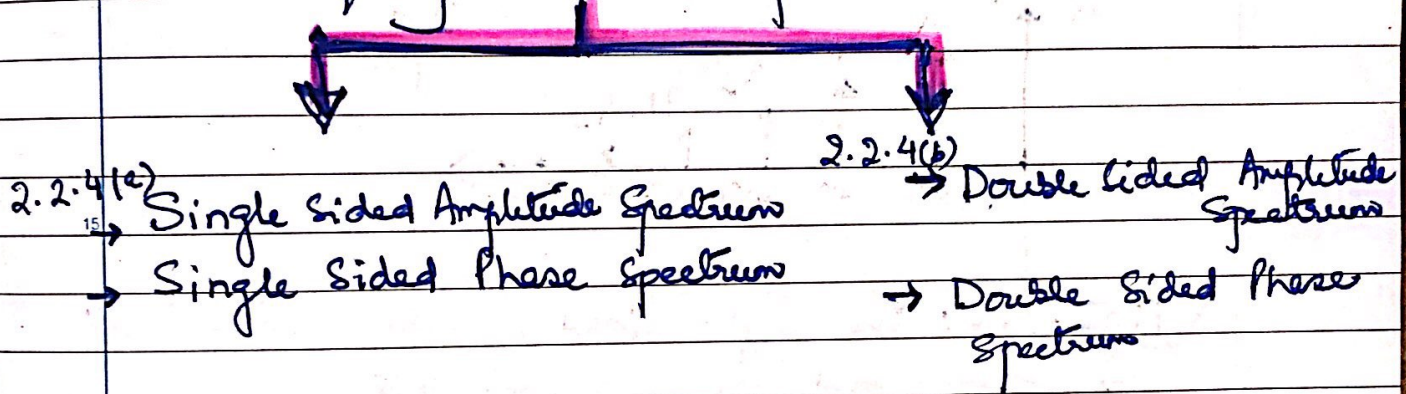 2.2.4(a)
Single Sided Amplitude Spectrum
15
→ Single Sided Phase Spectrum
2.2.4(b)
→ Double Sided Amplitude
Spectrum
→ Double Sided Phase
Spectrum